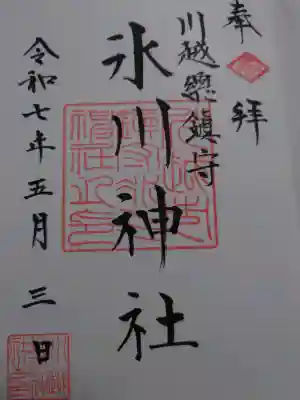 奉拝
川越總鎮守
氷川神社
令和七年五月三日